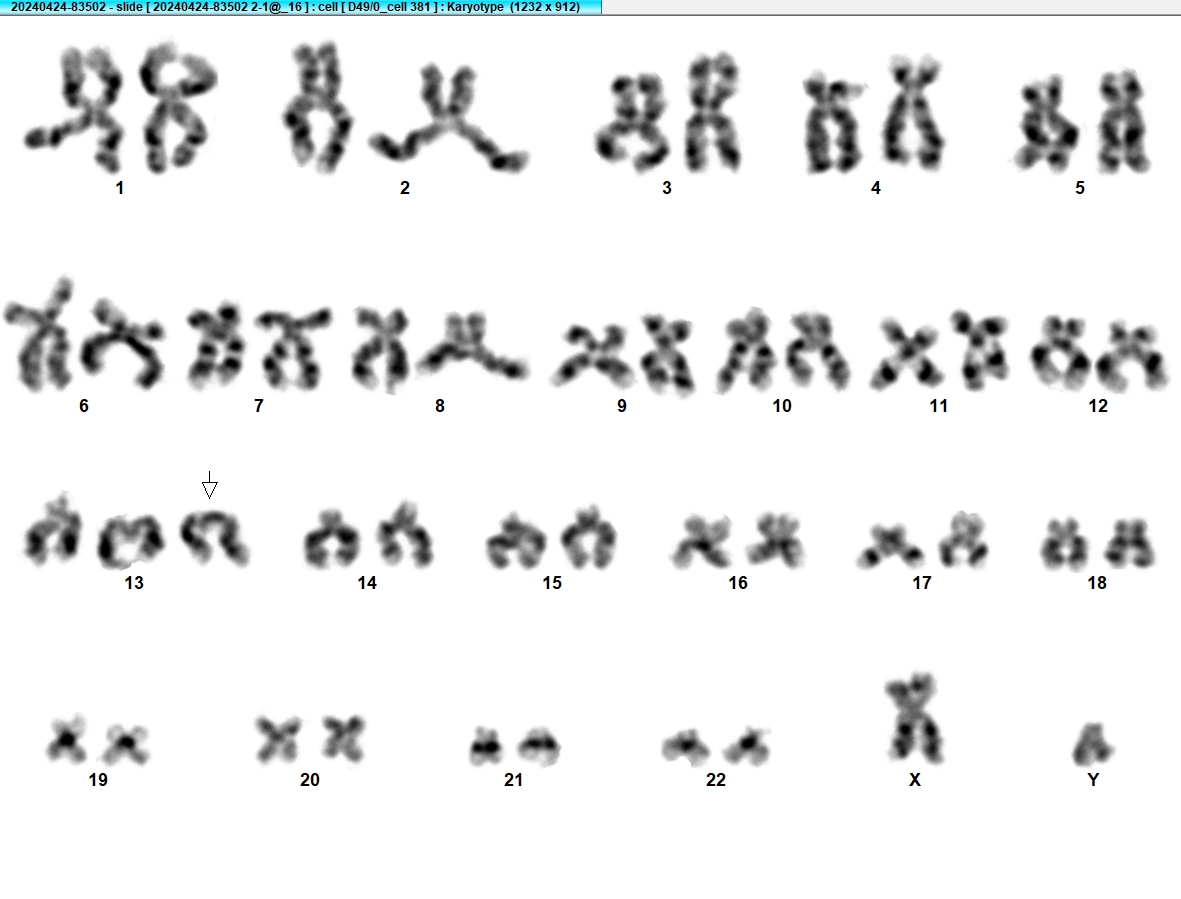 20240424-83502 - slide [ 20240424-83502 2-1@_16 ] : cell [ D49/0_cell 381 ] : Karyotype (1232 x 912)
1 2 3 4 5
6 7 8 9 10 11 12
13 14 15 16 17 18
19 20 21 22 X Y